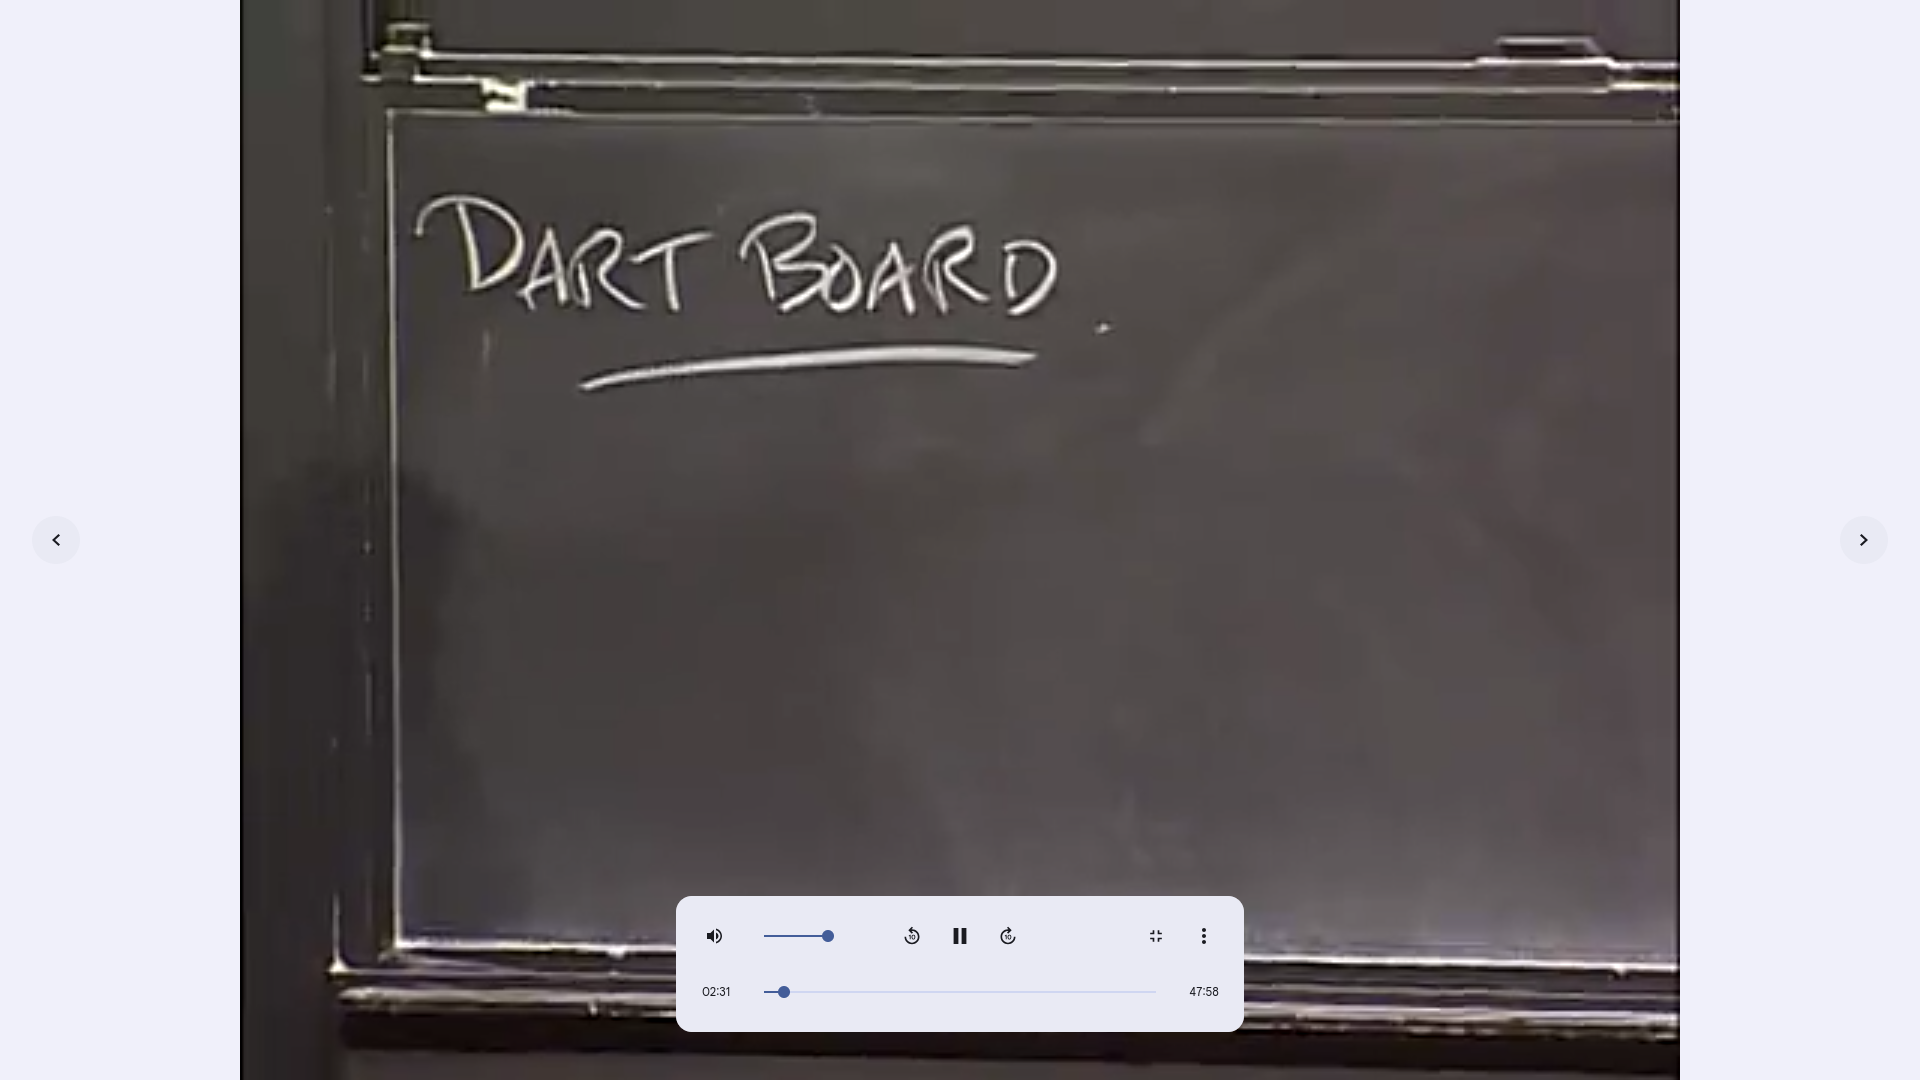 DART BOARD
02:31
47:58